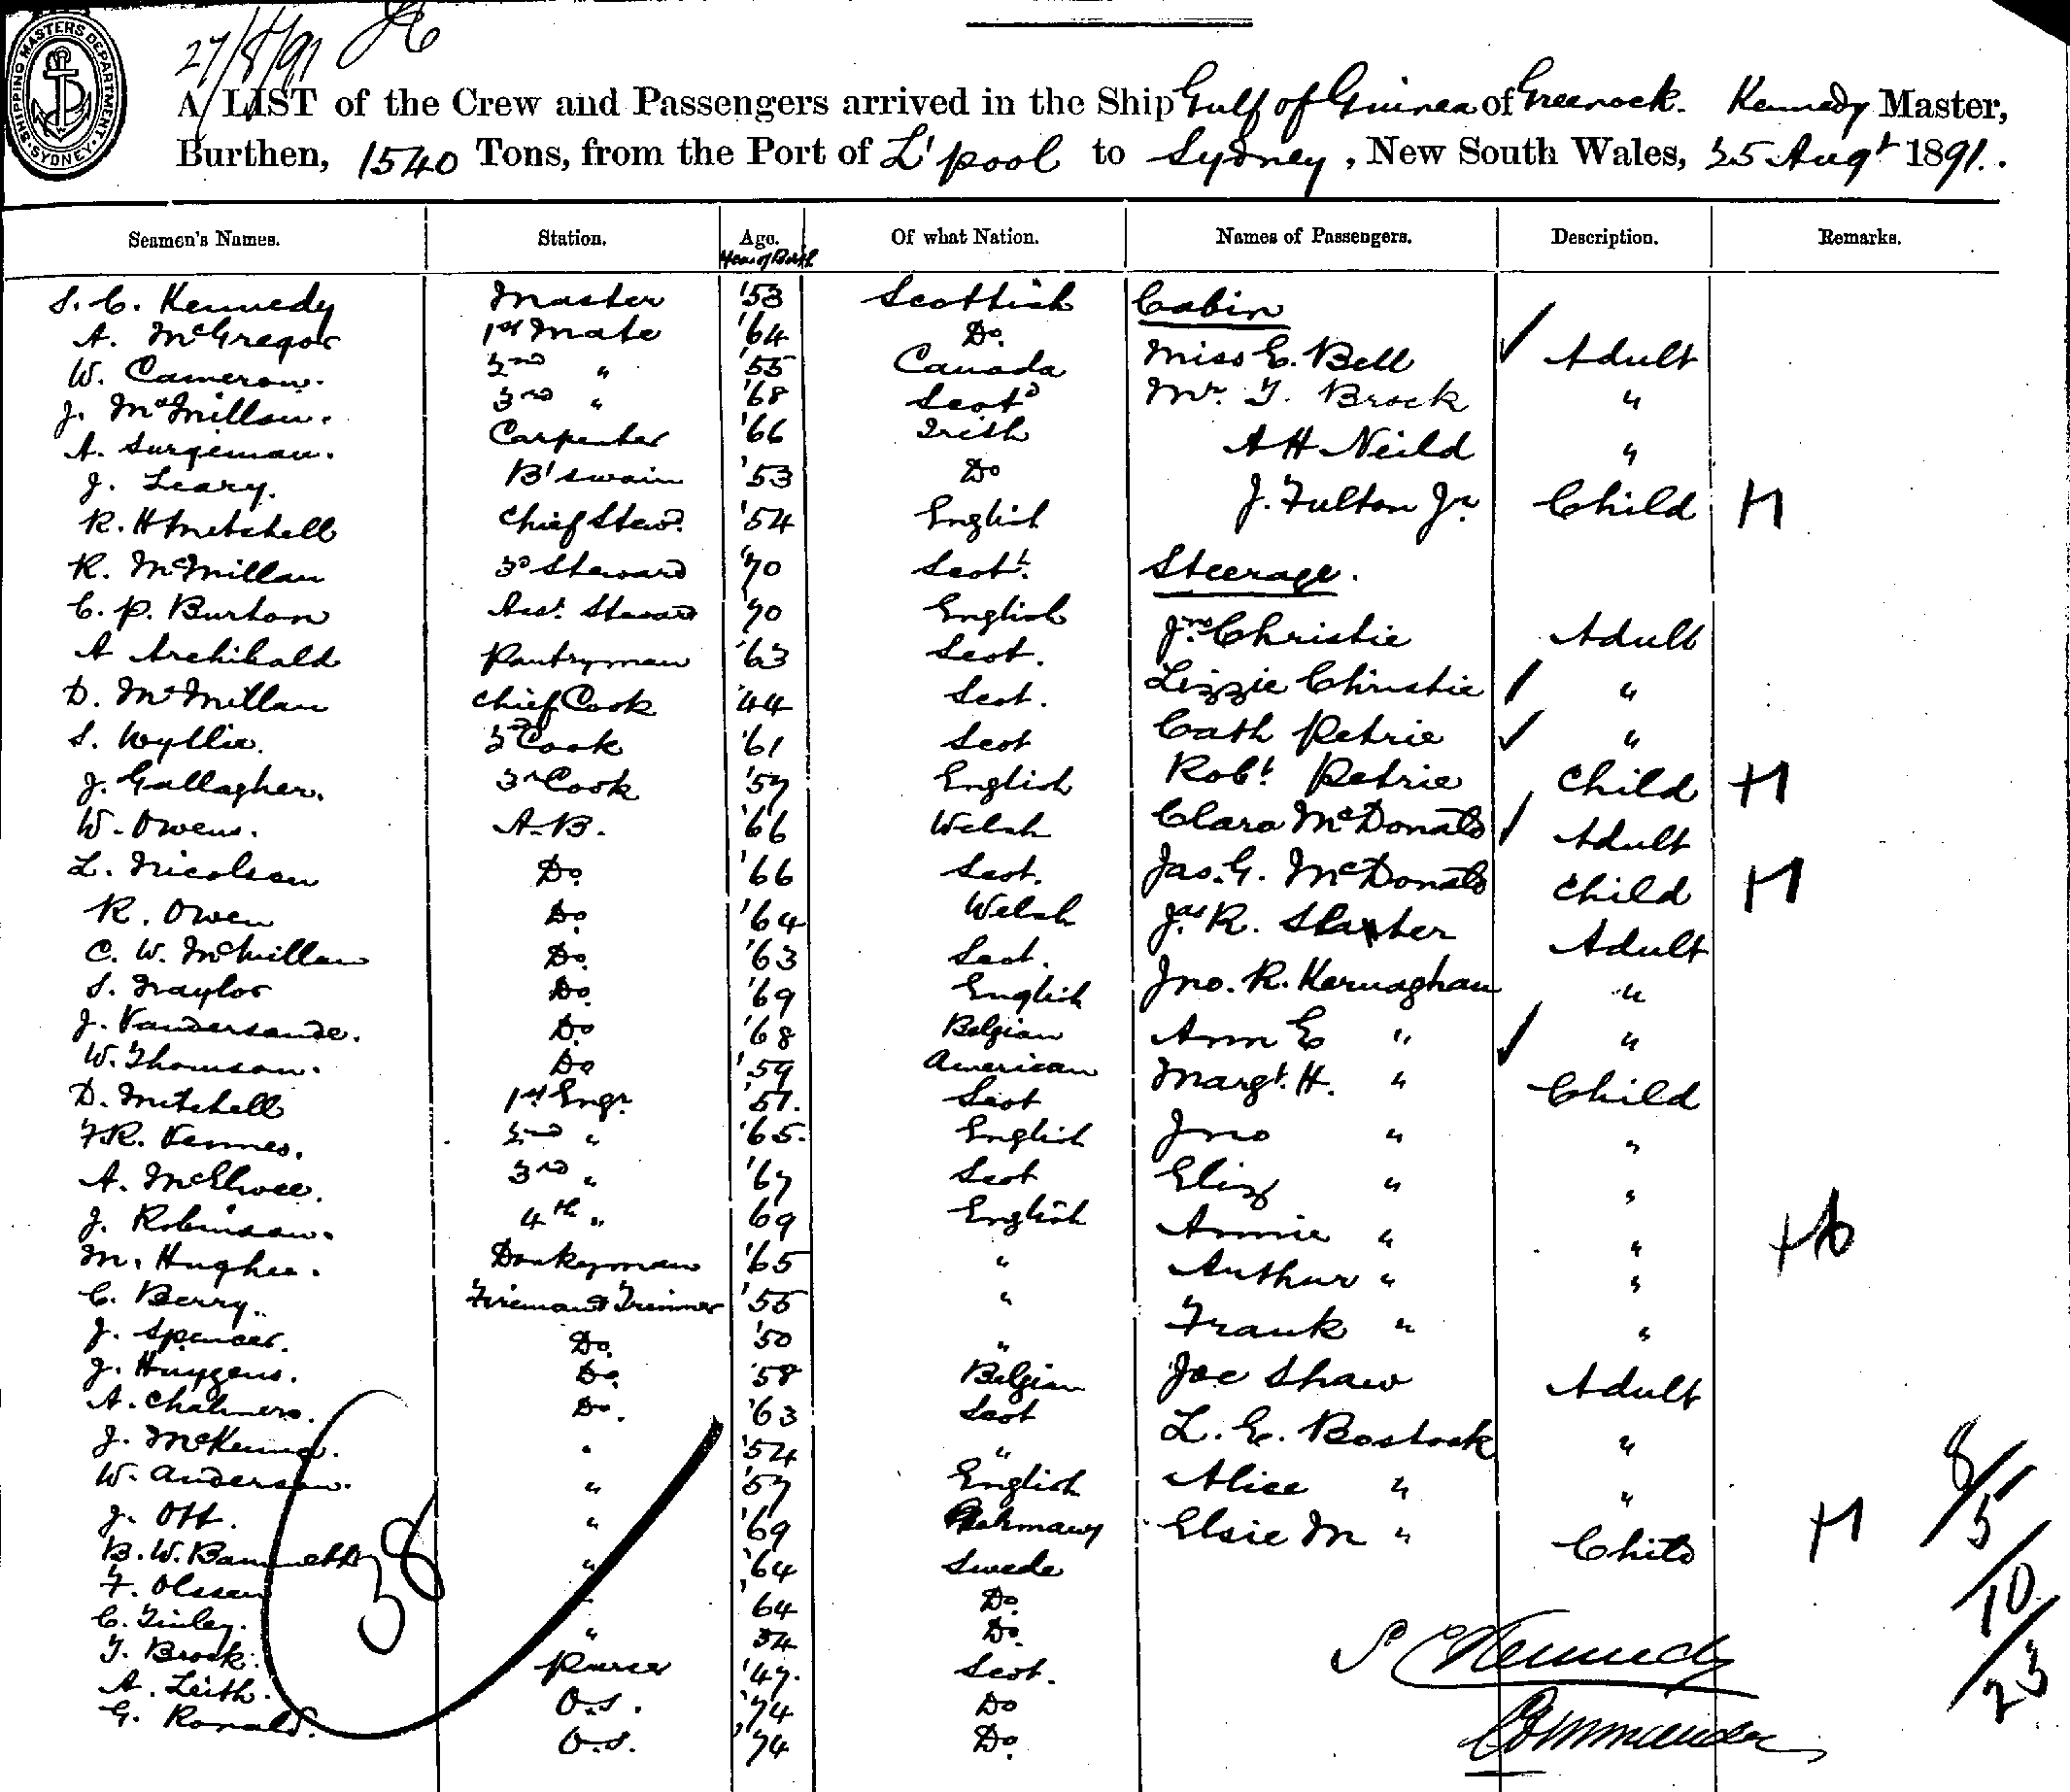 SHIPPING MASTERS DEPARTMENT · SYDNEY ·
27/8/91
A LIST of the Crew and Passengers arrived in the Ship Gulf of Guinea of Greenock. Kennedy Master,
Burthen, 1540 Tons, from the Port of L'pool to Sydney, New South Wales, 25 Augt 1891.
Seamen's Names. Station. Age. Of what Nation. Names of Passengers. Description. Remarks.
Year of Birth
S. C. Kennedy Master '53 Scottish Cabin
A. McGregor 1st Mate '64 Do. Miss E. Bell Adult
W. Cameron. 2nd " '55 Canada Mr. T. Brock "
J. McMillan. 3rd " '68 Scotd A H Neild "
A. Surgeman. Carpenter '66 Irish J. Fulton Jr. Child H
J. Leary. B'swain '53 Do Steerage.
R. H Mitchell Chief Stewd. '54 English Jno Christie Adult
R. McMillan 2d Steward '70 Scoth. Lizzie Christie "
C. P. Burton Asst. Steward '70 English Cath Petrie "
A Archibald Pantryman '63 Scot. Robt. Petrie Child H
D. McMillan Chief Cook '44 Scot. Clara McDonald Adult
S. Wyllie. 2d Cook '61 Scot Jas. G. McDonald Child H
J. Gallagher. 3rd Cook '57 English Jas. R. Slater Adult
W. Owens. A.B. '66 Welsh Jno. R. Kernaghan "
L. Nicolson Do. '66 Scot. Ann E " "
R. Owen Do. '64 Welsh Margt. H. " Child
C. W. McMillan Do. '63 Scot. Jno " "
S. Naylor Do. '69 English Eliz " "
J. Vandersande. Do '68 Belgian Annie " "
W. Thomson. Do '59 American Arthur " "
D. Mitchell 1st Engr. '57. Scot Frank " "
F R. Vennes. 2nd " '65. English Joe Shaw Adult
A. McElwee. 3rd " '67 Scot L. E. Bostock "
J. Robinson. 4th " 69 English Alice " "
M. Hughes. Donkeyman '65 " Elsie M " Child H
C. Berry. Fireman & Trimmer '55 "
J. Spencer. Do. '50 "
J. Huygens. Do. '58 Belgian
A. Chalmers. Do. '63 Scot
J. McKenna. " '54 "
W. Anderson. " '57 English
J. Ott. " '69 Germany
B. W. " '64 Swede
F. Olssen " 64 Do.
C. Finley. " 54 Do.
T. Brock. Purser '47. Scot.
A. Leith. O.S. '74 Do
G. Ronald. O.S. '74 Do.
38
8/5/10/23
S C Kennedy
Commander